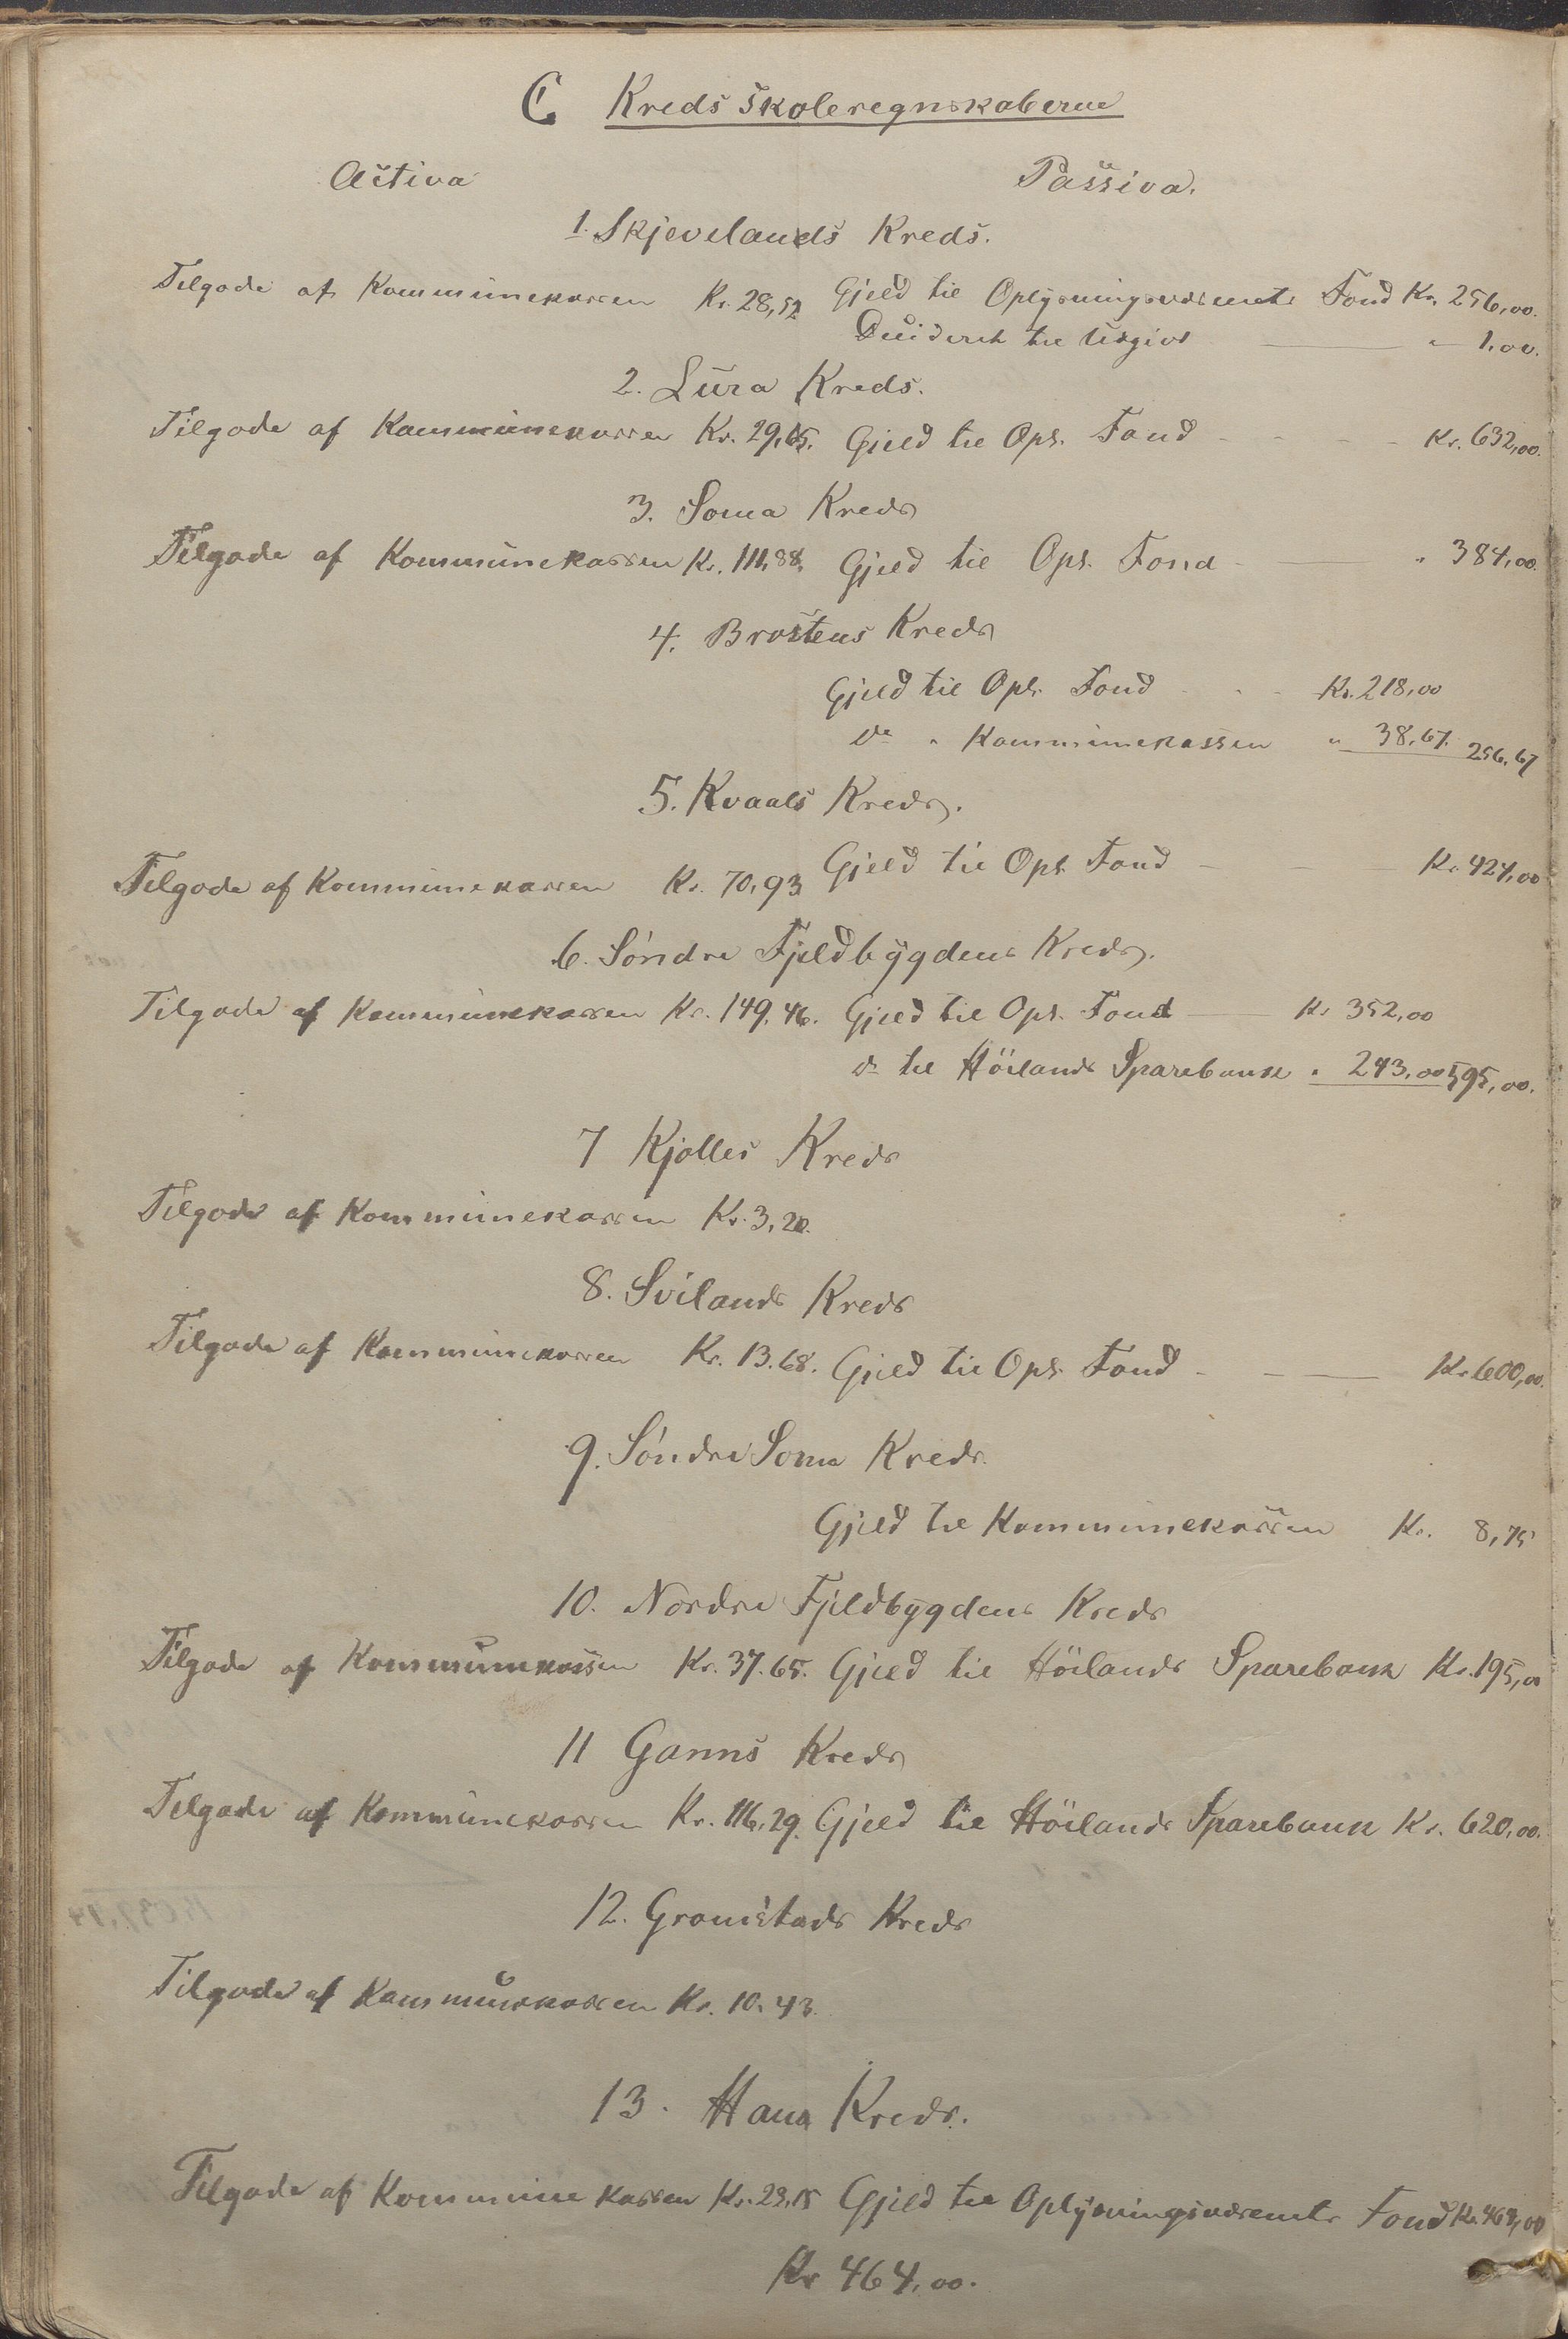 C Kreds skoleregnskaberne
Activa Passiva.
1. Skjevelands Kreds.
Tilgode af Kommunekassen Kr. 28,52 Gjeld til Oplysningsvæsenets Fond Kr. 256,00.
til Udgivt " 1.00.
2. Lura Kreds.
Tilgode af Kommunekassen Kr. 29,65. Gjeld til Opl. Fond Kr. 632,00.
3. Soma Kreds
Tilgode af Kommunekassen Kr. 111,88, Gjeld til Opl. Fond " 384,00.
4. Brostens Kreds
Gjeld til Opl. Fond Kr. 218,00
do " Kommunekassen " 38,67. 256,67
5. Kvaals Kreds.
Tilgode af Kommunekassen Kr. 70,93 Gjeld til Opl. Fond Kr. 424,00
6. Söndre Fjeldbygdens Kreds.
Tilgode af Kommunekassen Kr. 149,46. Gjeld til Opl. Fond Kr. 352,00
do til Höilands Sparebank " 243,00 595,00.
7 Kjolles Kreds
Tilgode af Kommunekassen Kr. 3,20.
8. Svilands Kreds
Tilgode af Kommunekassen Kr. 13.68. Gjeld til Opl. Fond Kr. 600,00.
9. Söndre Soma Kreds.
Gjeld til Kommunekassen Kr. 8,75
10. Nordre Fjeldbygdens Kreds
Tilgode af Kommunekassen Kr. 37.65. Gjeld til Höilands Sparebank Kr. 195,00
11 Ganns Kreds
Tilgode af Kommunekassen Kr. 116,29. Gjeld til Höilands Sparebank Kr. 620,00.
12. Gramstads Kreds
Tilgode af Kommunekassen Kr. 10,43.
13. Hana Kreds.
Tilgode af Kommune kassen Kr. 23,15 Gjeld til Oplysningsvæsenets Fond Kr. 464,00
Kr 464,00.